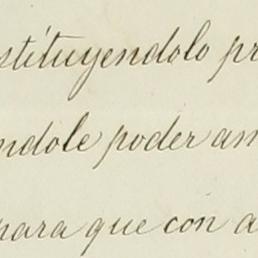 stituyendolo pr
ndole poder am
para que con a